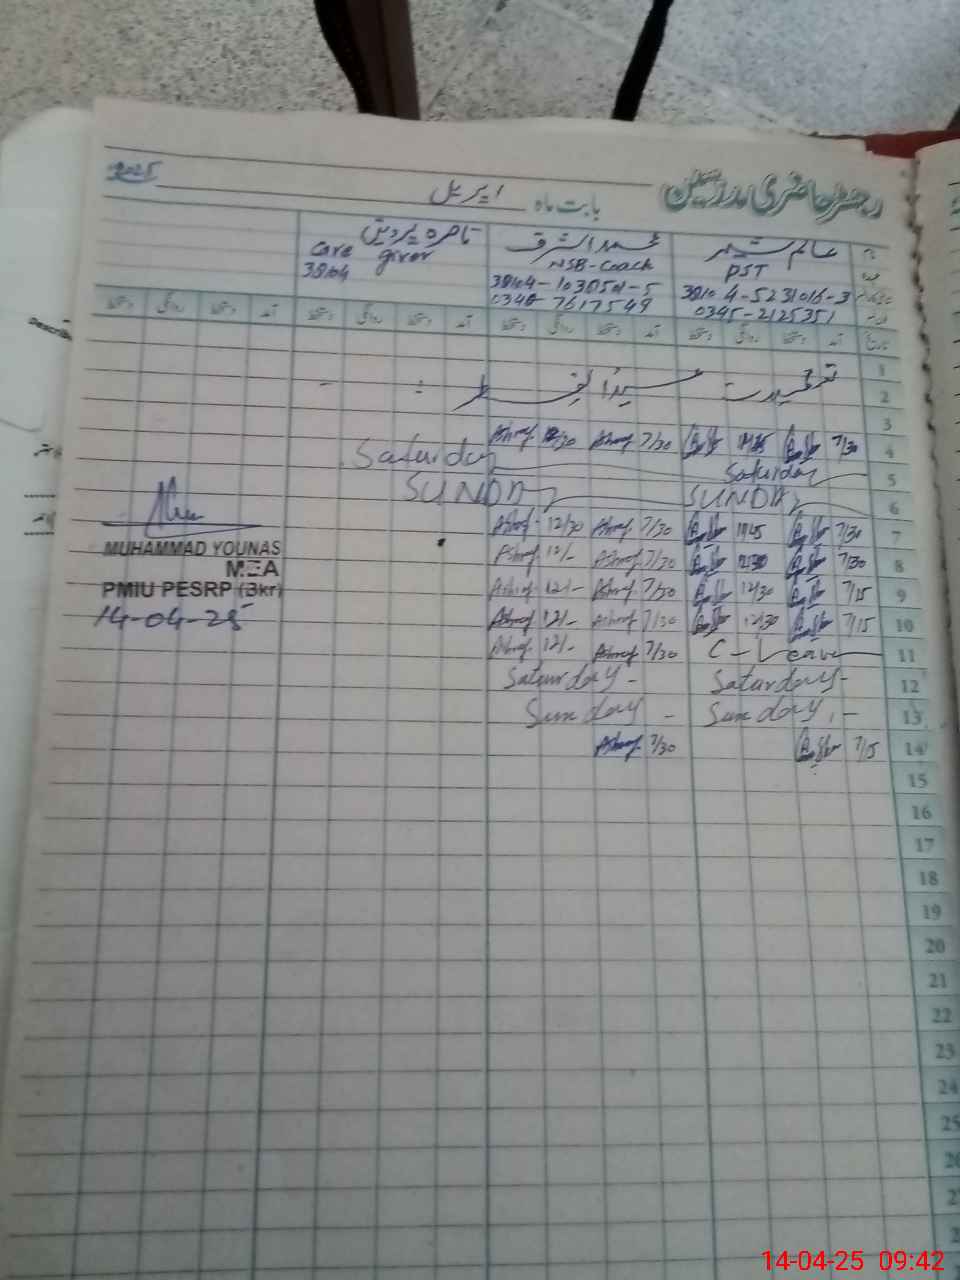 رجسٹر حاضری مدرسین
بابت ماہ اپریل 2025
محمد اشرف
PST
NSB-Coach
Care giver
38104-5231016-3
38104-1038501-5
38104
0345-2125351
0346 7617549
تاریخ
آمد دستخط روانگی دستخط آمد دستخط روانگی دستخط آمد دستخط روانگی دستخط آمد دستخط روانگی دستخط
1
2 تعطیلات عید الفطر
3
4 7/30 Ashraf 7/30 Ashraf
5 Saturday Saturday
6 SUNDAY SUNDAY
7 7/30 7/30 Ashraf 12/30 Ashraf
8 7/30 7/30 Ashraf 12/- Ashraf
9 7/15 12/30 7/30 Ashraf 12/- Ashraf
10 7/15 12/30 7/30 Ashraf 12/- Ashraf
11 C-Leave 7/30 Ashraf 12/- Ashraf
12 Saturday- Saturday-
13 Sunday,- Sunday -
14 7/15 7/30 Ashraf
15
16
17
18
19
20
21
22
23
24
25
MUHAMMAD YOUNAS
MEA
PMIU PESRP (Bkr)
14-04-25
14-04-25 09:42